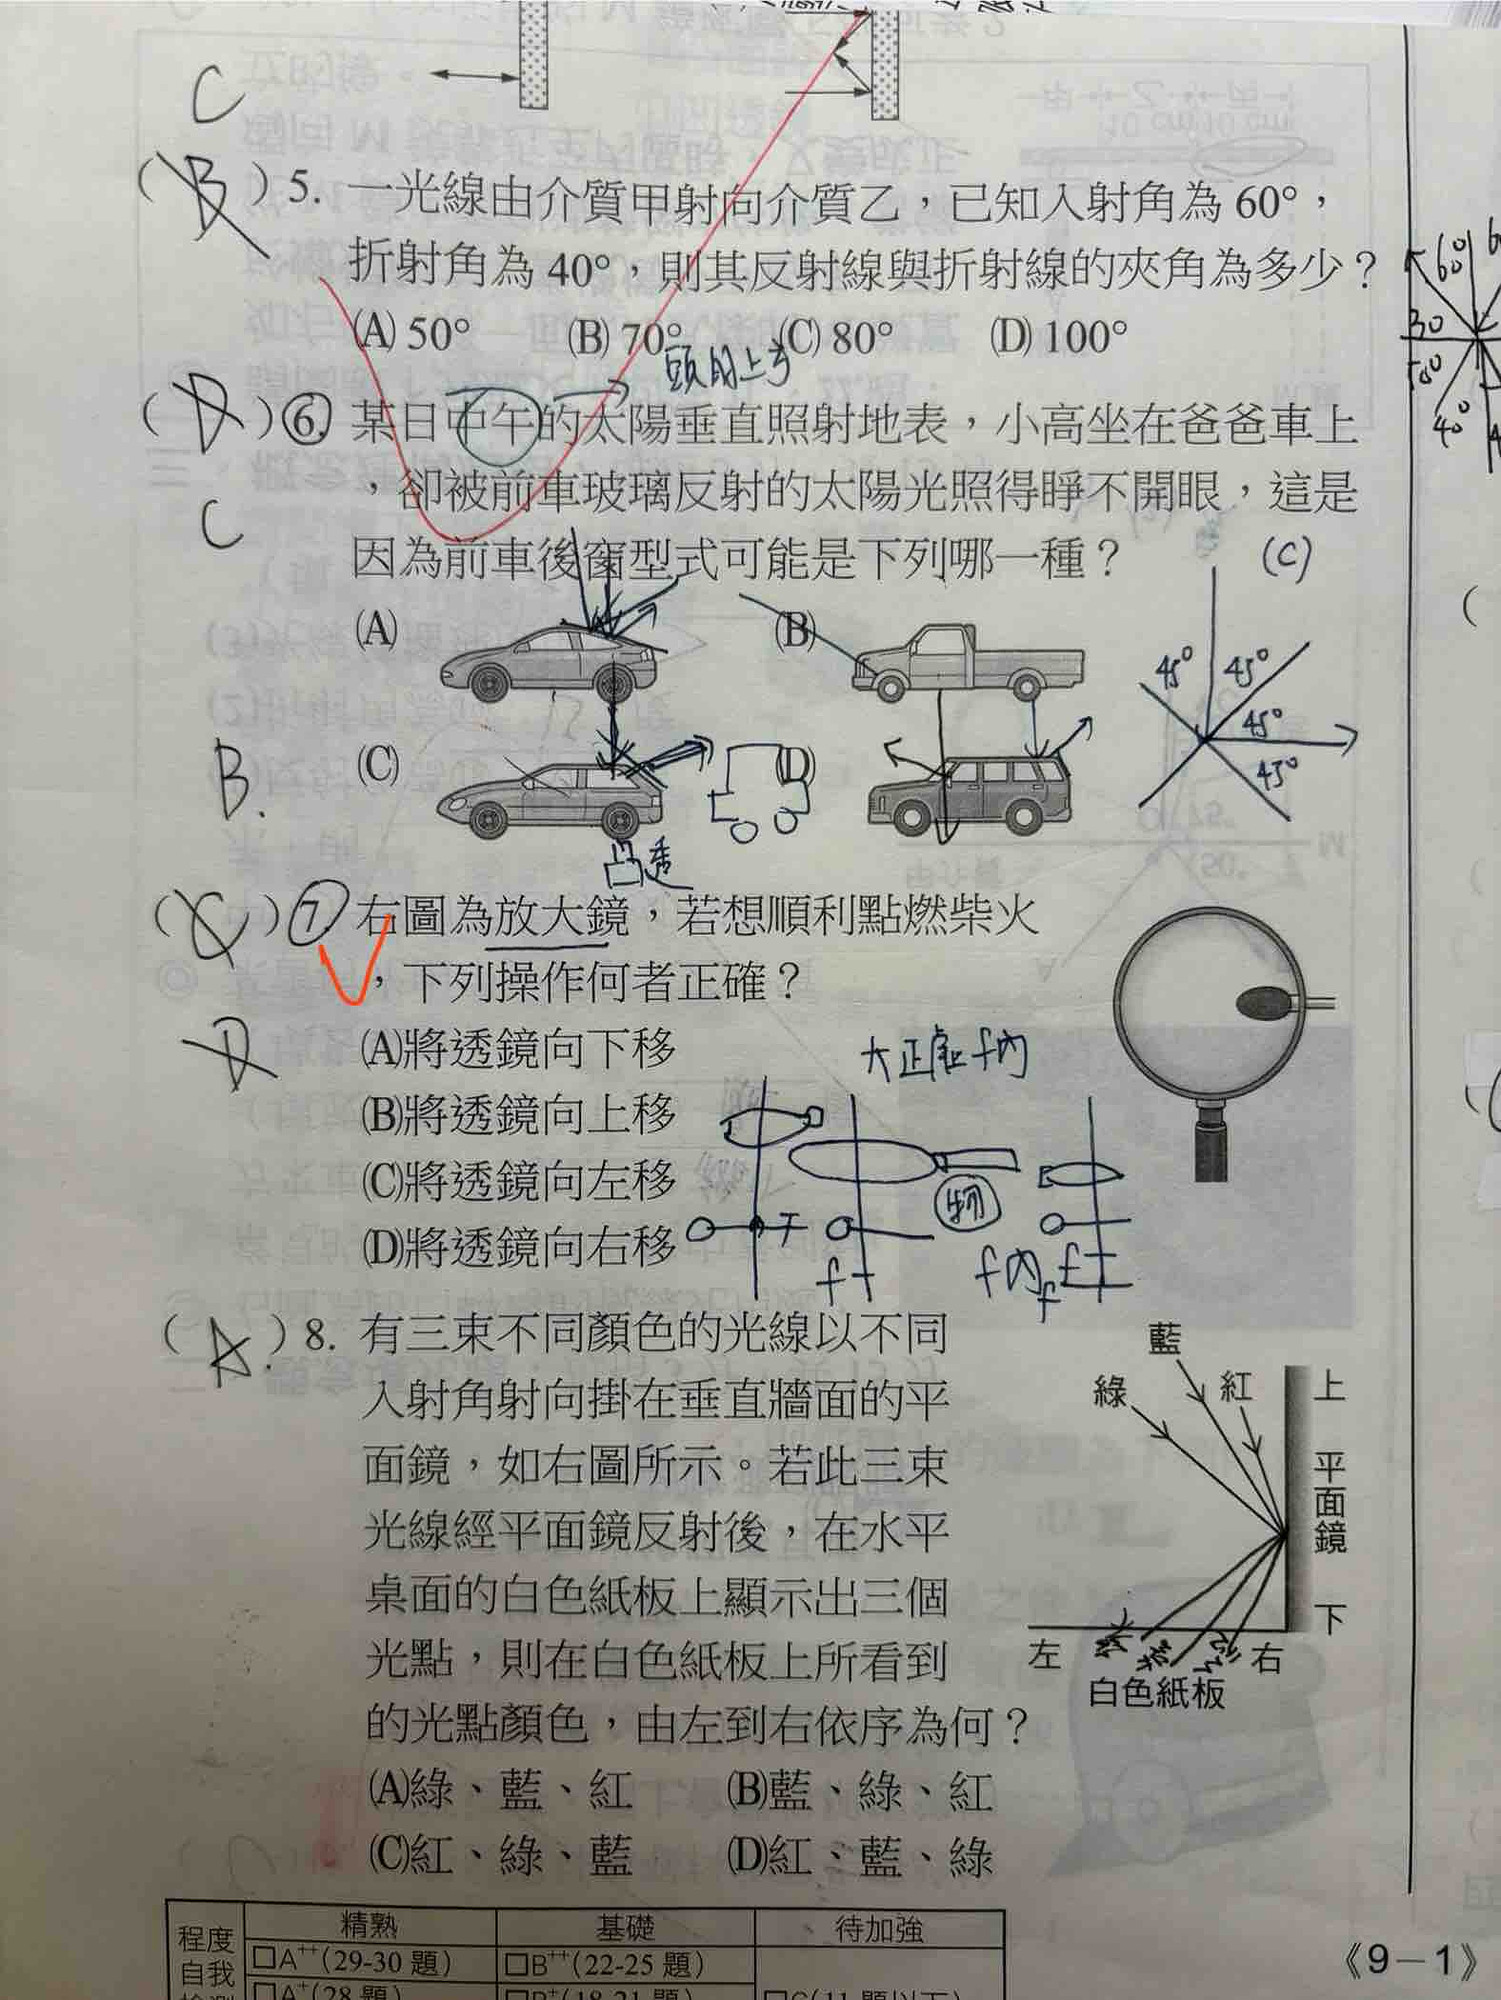 C
(B) 5. 一光線由介質甲射向介質乙，已知入射角為 60°，
折射角為 40°，則其反射線與折射線的夾角為多少？
(A) 50° (B) 70° (C) 80° (D) 100°
60°
30
50
40°
頭的上方
(D) 6. 某日中午的太陽垂直照射地表，小高坐在爸爸車上
，卻被前車玻璃反射的太陽光照得睜不開眼，這是
因為前車後窗型式可能是下列哪一種？
C
(C)
(A) (B)
45° 45°
45°
45°
(C) (D)
B.
凸透
(C) 7. 右圖為放大鏡，若想順利點燃柴火
，下列操作何者正確？
D
(A)將透鏡向下移
大正虛 f內
(B)將透鏡向上移
(C)將透鏡向左移
物
(D)將透鏡向右移
f
f內
f
(A.) 8. 有三束不同顏色的光線以不同
入射角射向掛在垂直牆面的平
面鏡，如右圖所示。若此三束
光線經平面鏡反射後，在水平
桌面的白色紙板上顯示出三個
光點，則在白色紙板上所看到
的光點顏色，由左到右依序為何？
藍
綠 紅 上
平面鏡
下
左 右
白色紙板
(A)綠、藍、紅 (B)藍、綠、紅
(C)紅、綠、藍 (D)紅、藍、綠
程度
自我
精熟 基礎 待加強
□A++(29-30 題) □B++(22-25 題)
□A+(28 題) □B+(18-21 題) □C(11 題以下)
《9－1》